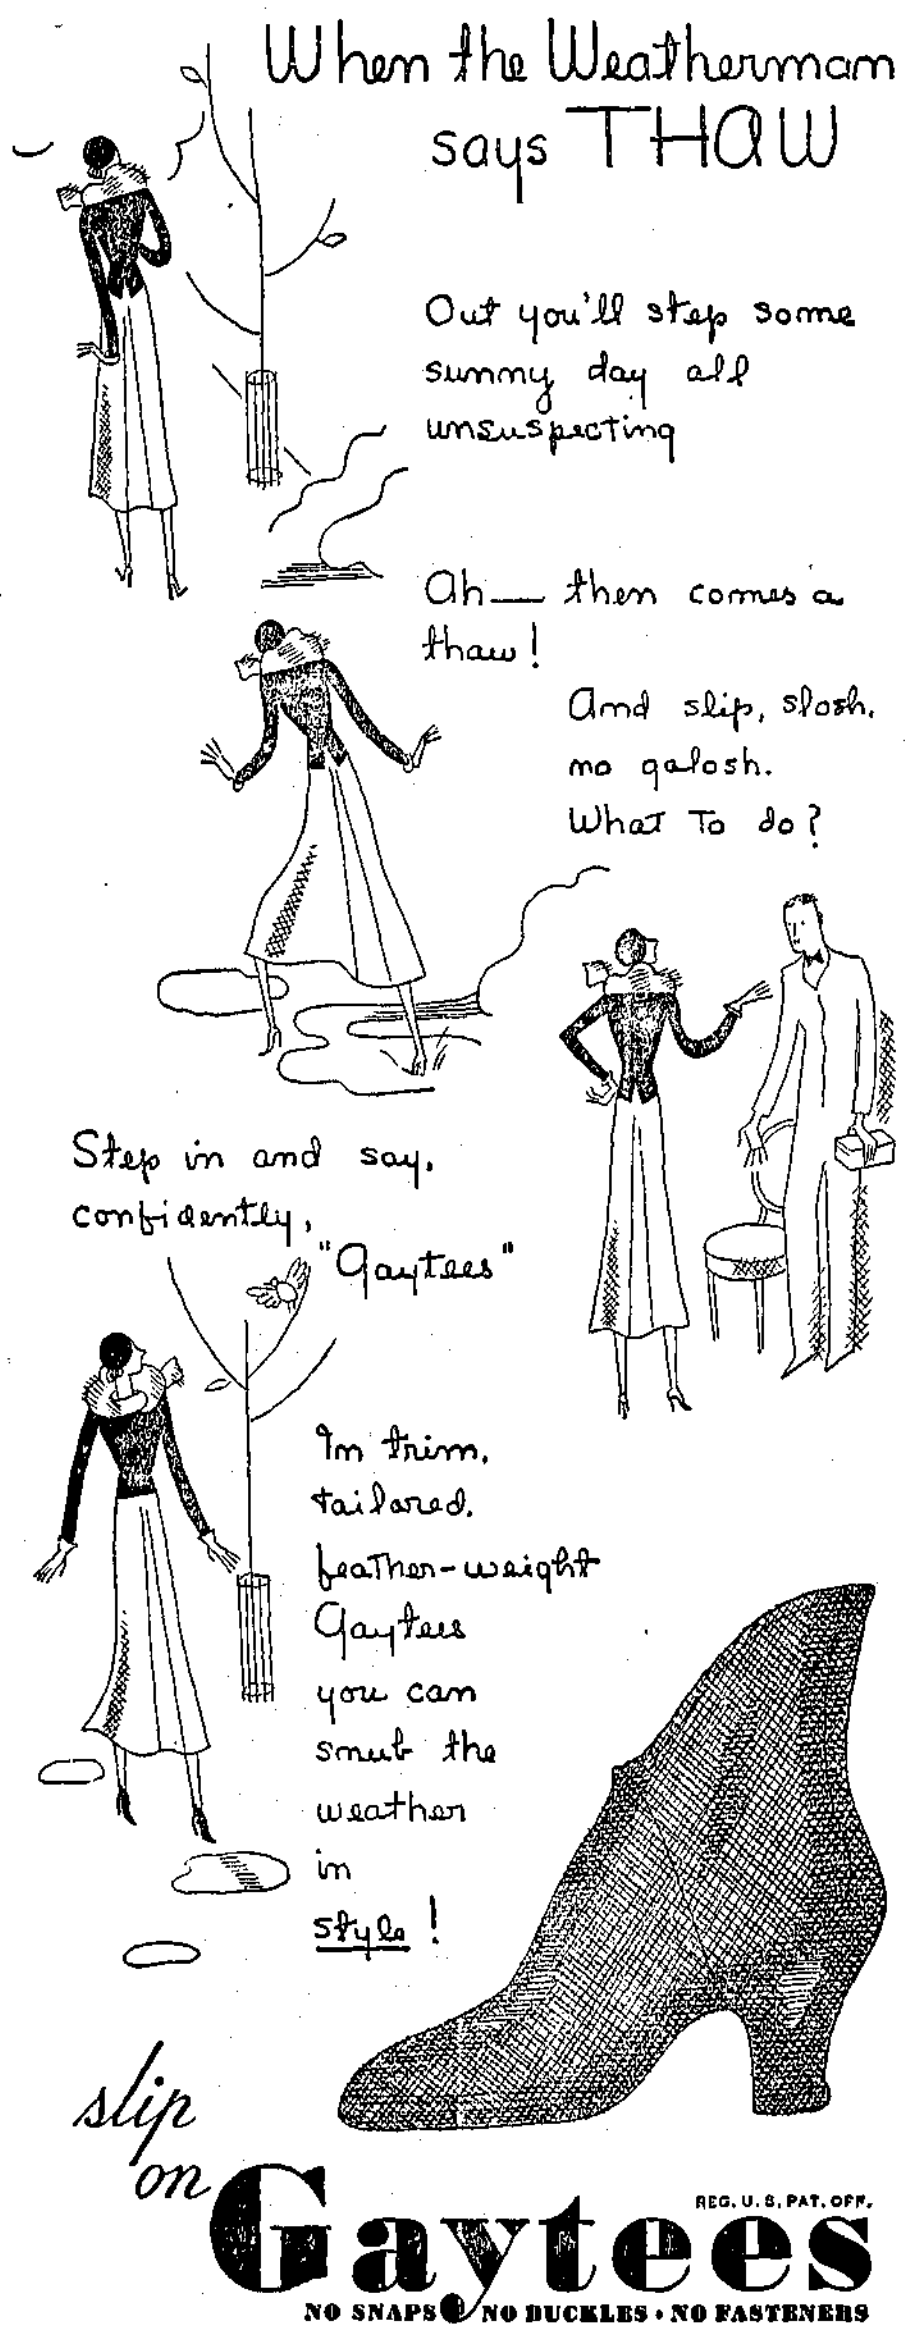 When the Weatherman
says THAW
Out you'll step some
sunny day all
unsuspecting
Ah— then comes a
thaw!
And slip, slosh,
no galosh.
What To do?
Step in and say,
confidently,
"Gaytees"
In trim,
tailored,
feather-weight
Gaytees
you can
snub the
weather
in
style!
slip
on
Gaytees
REG. U. S. PAT. OFF.
NO SNAPS • NO BUCKLES • NO FASTENERS